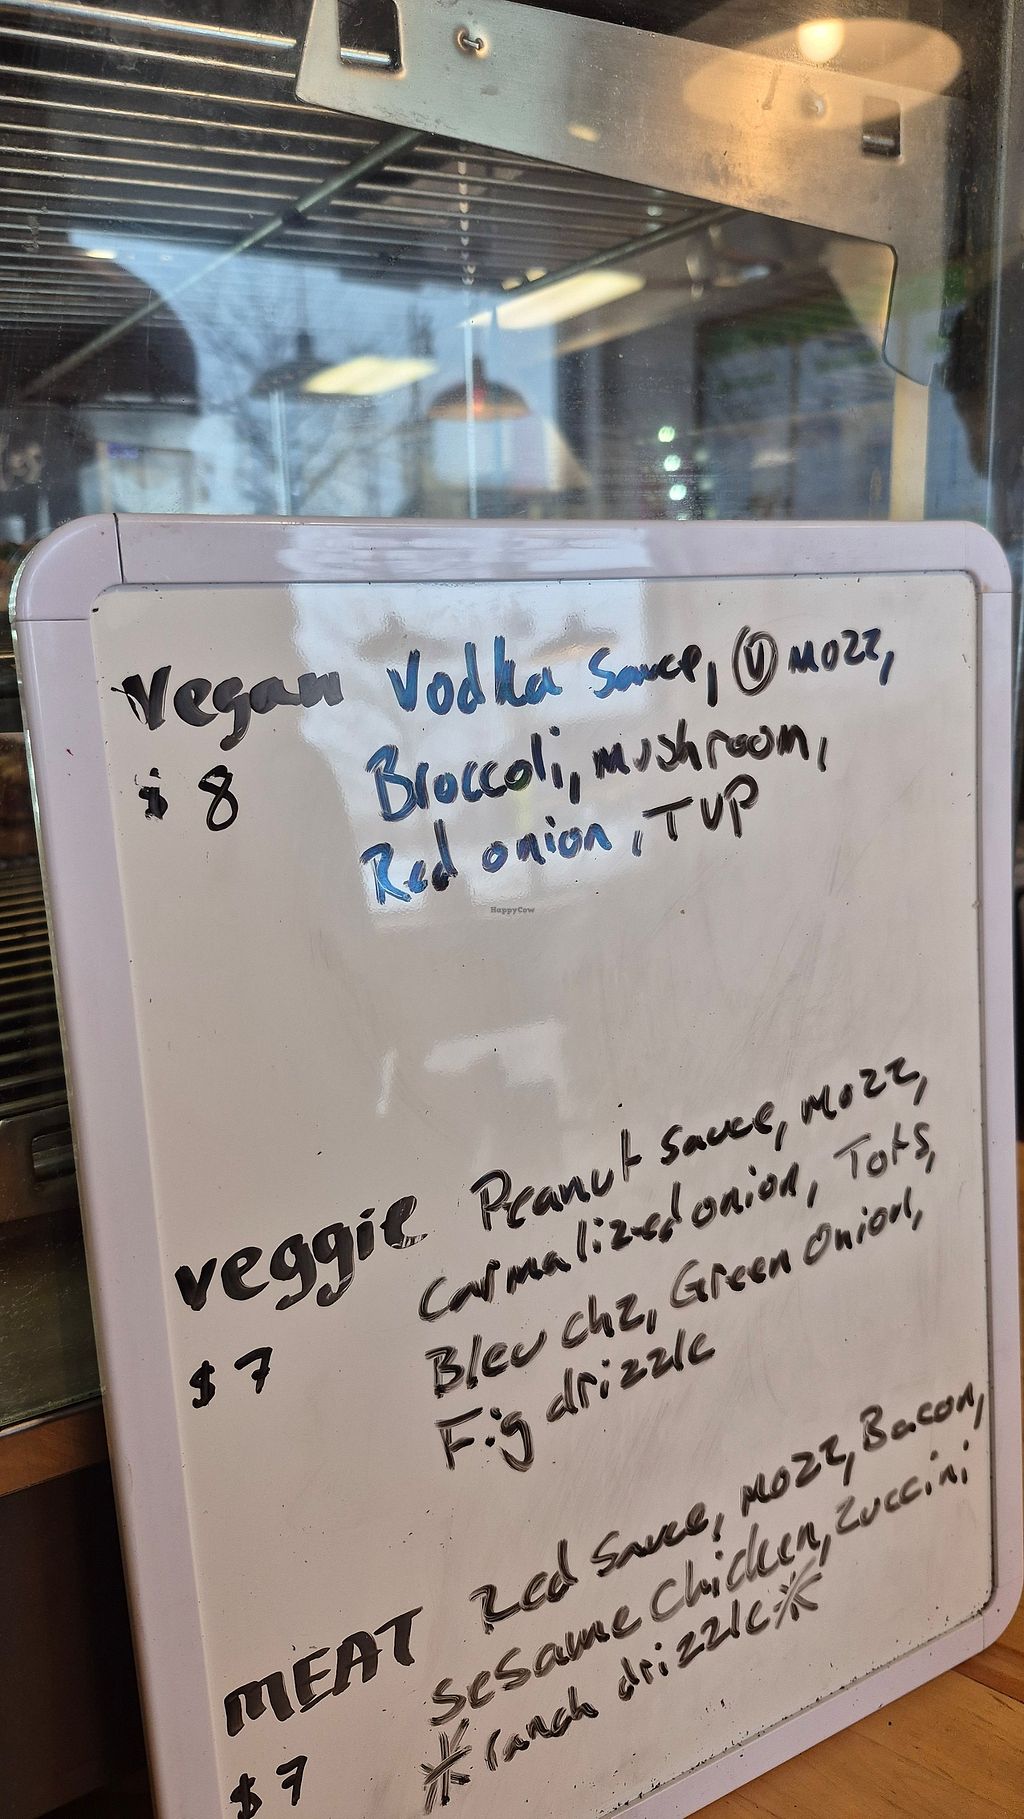 Vegan Vodka Sauce, Ⓥ mozz,
$8 Broccoli, mushroom,
Red onion, TVP
HappyCow
veggie Peanut sauce, mozz,
carmalized onion, Tots,
$7 Bleu chz, Green Onion,
Fig drizzle
MEAT Red sauce, mozz, Bacon,
Sesame Chicken, Zuccini
$7 *ranch drizzle*